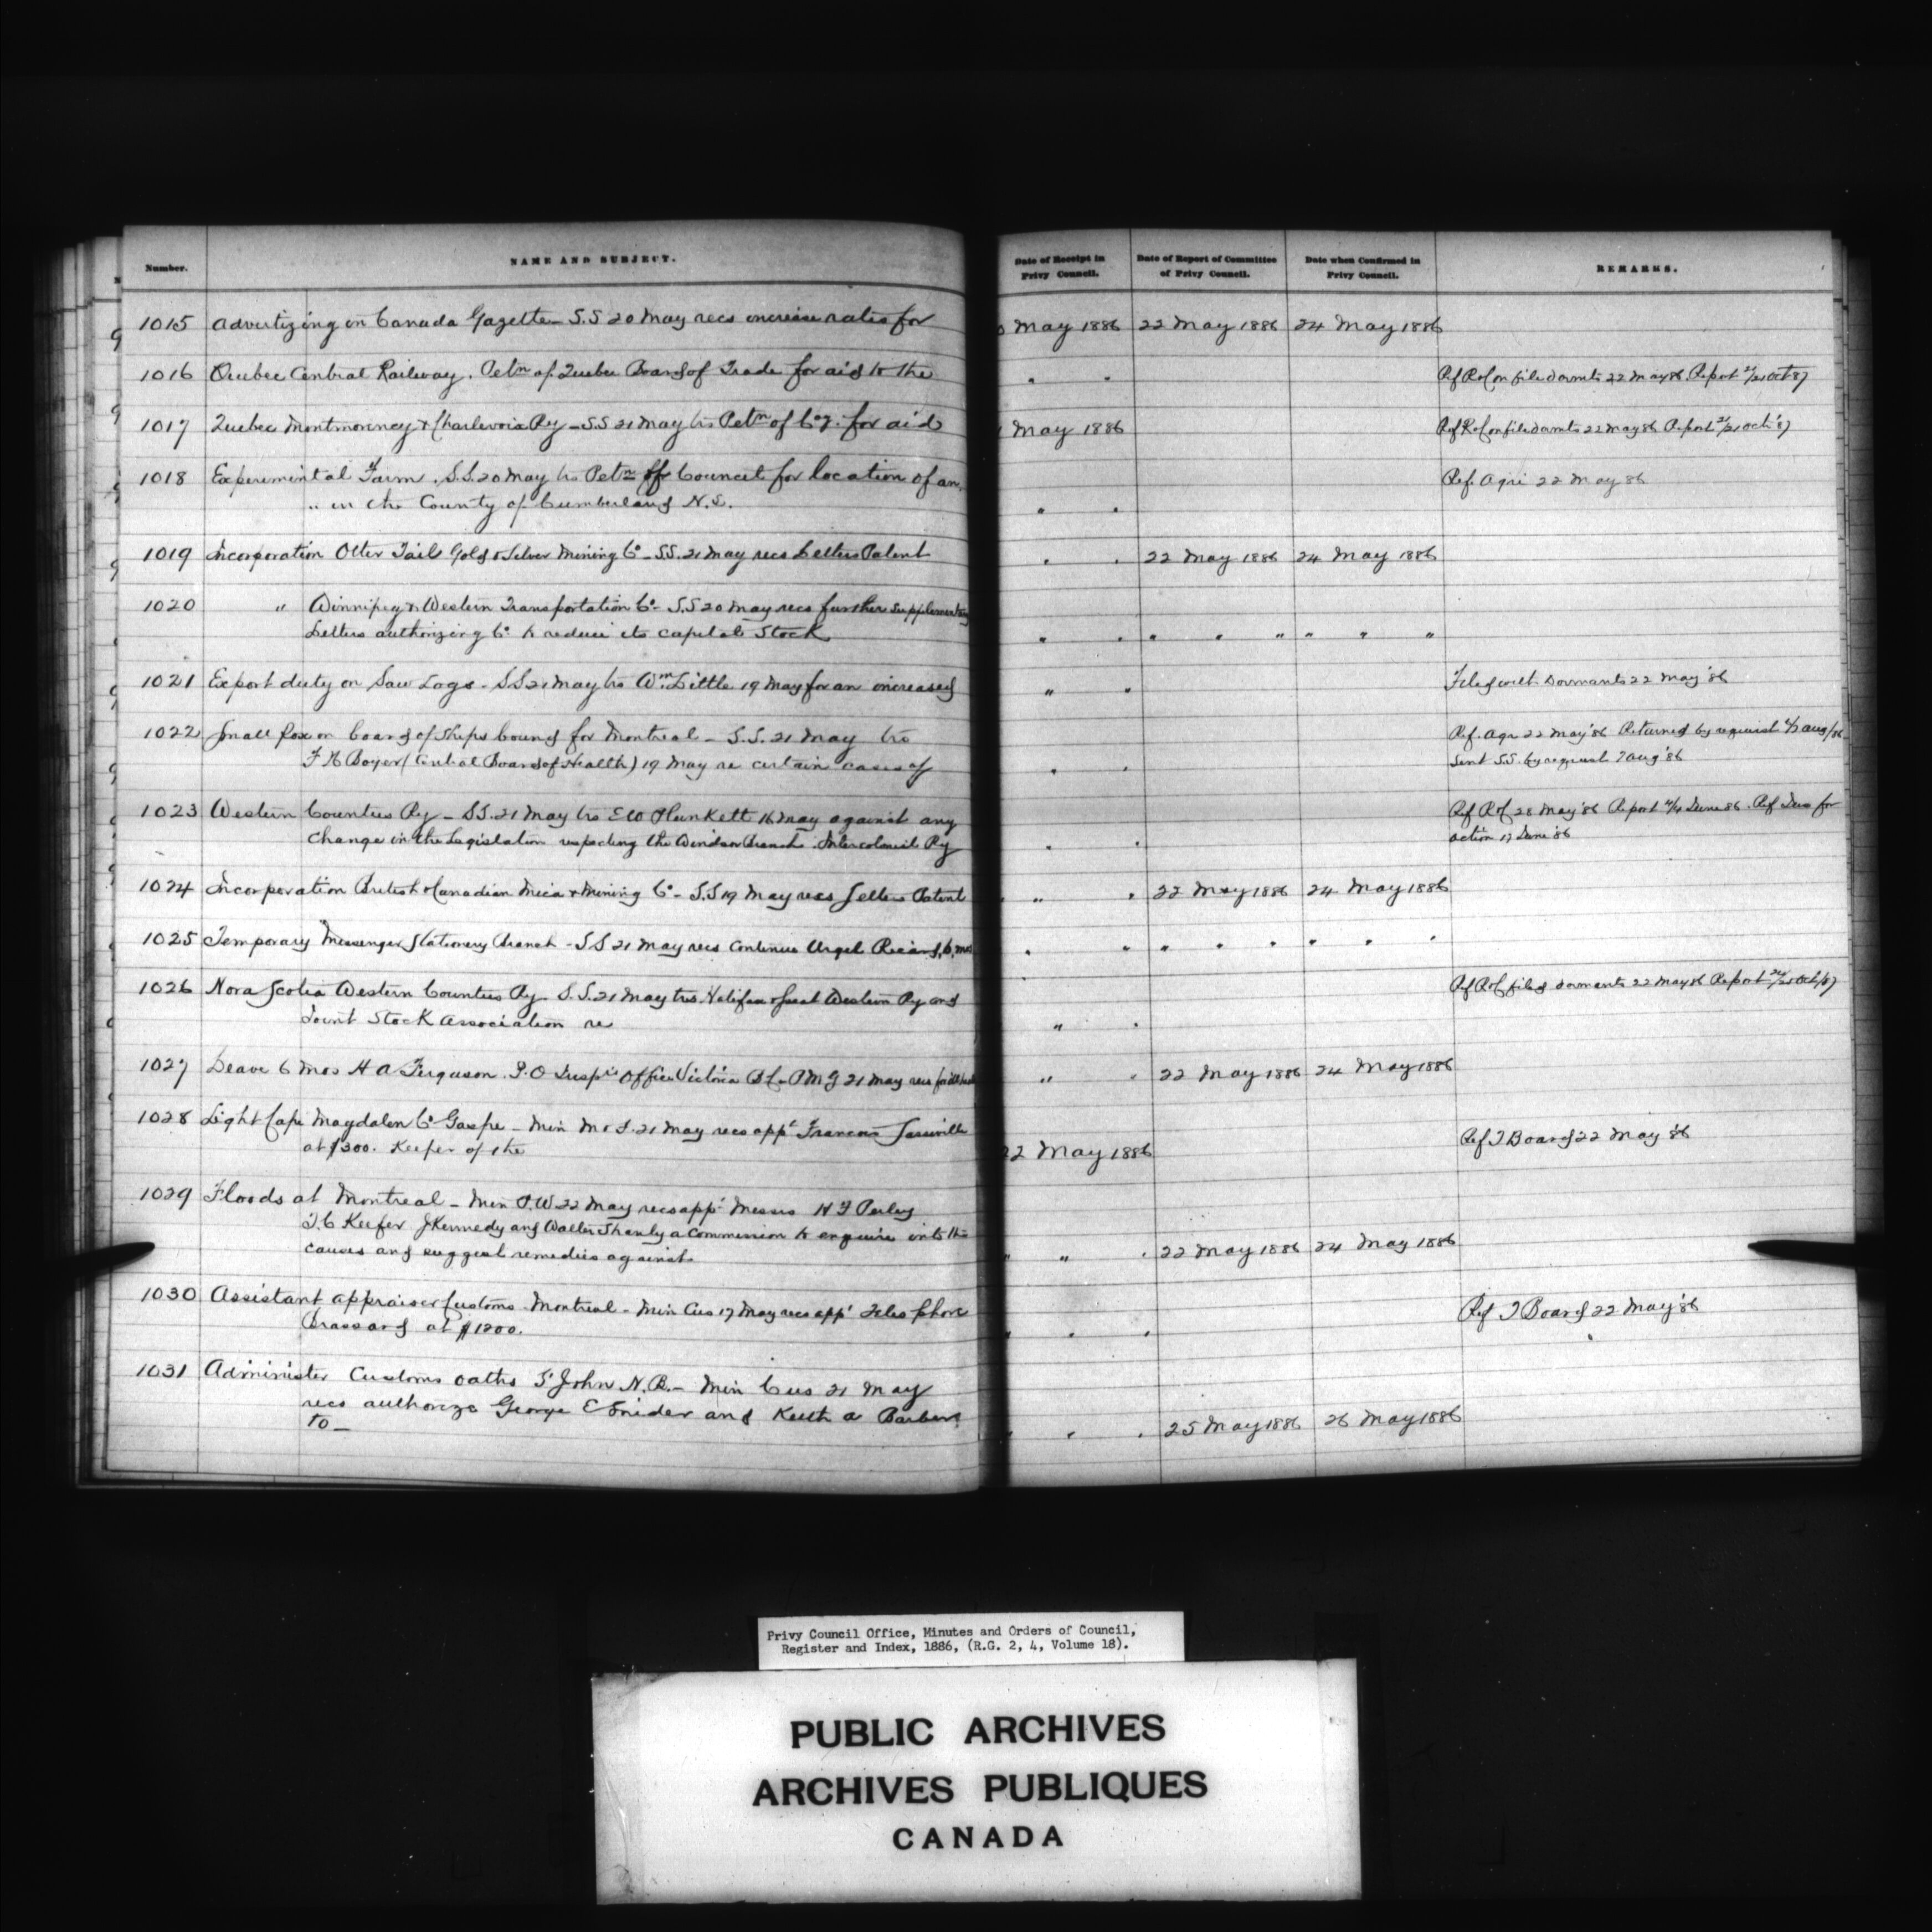 Number. NAME AND SUBJECT. Date of Receipt in Privy Council. Date of Report of Committee of Privy Council. Date when Confirmed in Privy Council. REMARKS.
1015 Advertizing in Canada Gazette - S.S 20 May recs increase rates for May 1886 22 May 1886 24 May 1886
1016 Quebec Central Railway. Petn of Quebec Board of Trade for aid to the " " Ref RofC on file dormts 22 May 86. Report 21/21 Oct 87
1017 Quebec Montmorency & Charlevoix Ry - S.S 21 May trs Petn of Coy. for aid May 1886 Ref RofC on file dormts 22 May 86 Report 21/21 Oct '87
1018 Experimental Farm. S.S. 20 May trs Petn of Council for location of an Ref. Agri 22 May 86
" in the County of Cumberland N.S. " "
1019 Incorporation Otter Tail Gold & Silver Mining Co - S.S. 21 May recs Letters Patent " " 22 May 1886 24 May 1886
1020 " Winnipeg & Western Transportation Co - S.S 20 May recs further Supplementary
Letters authorizing Co to reduce its capital Stock " " " " " " " "
1021 Export duty on Saw Logs - S.S 21 May trs Wm Little 19 May for an increased " " Filed with Dormants 22 May '86
1022 Small Pox on board of Ships bound for Montreal - S.S. 21 May trs Ref. Agr 22 May '86 Returned by request Aug/86
Boyer (Central Board of Health) 19 May re certain cases of " " Sent S.S. by request 7 Aug '86
1023 Western Counties Ry - S.S. 21 May trs E W Plunkett 16 May against any Ref RofC 28 May '86 Report June 86. Ref Jus for
change in the Legislation respecting the Windsor Branch Intercolonial Ry " " action 17 June '86
1024 Incorporation British & Canadian Mica & Mining Co - S.S 19 May recs Letters Patent " " 22 May 1886 24 May 1886
1025 Temporary Messenger Stationery Branch - S.S 21 May recs continue Urgel Ricard, 6 mos " " " " " " " "
1026 Nova Scotia Western Counties Ry - S.S. 21 May trs Halifax & Great Western Ry and Ref RofC filed dormants 22 May 86 Report 21/21 Oct/87
Joint Stock Association re " "
1027 Leave 6 mos H A Ferguson. P.O Insprs Office Victoria BC - P M G 21 May recs for " " 22 May 1886 24 May 1886
1028 Light Cape Magdalen Co Gaspe - Min M & F. 21 May recs appt Francois Ref T Board 22 May '86
at $300. Keeper of the 22 May 1886
1029 Floods at Montreal - Min P.W. 22 May recs appt Messrs H F Perley
T.C Keefer J Kennedy and Walter Shanly a Commission to enquire into the
causes and suggest remedies against " " " 22 May 1886 24 May 1886
1030 Assistant Appraiser Customs Montreal - Min Cus 17 May recs appt Telesphore Ref T Board 22 May '86
Brassard at $1200. " " "
1031 Administer Customs oaths St John N.B. - Min Cus 21 May
recs authorize George E Snider and Keith A Barber
to - " " " 25 May 1886 26 May 1886
Privy Council Office, Minutes and Orders of Council,
Register and Index, 1886, (R.G. 2, 4, Volume 18).
PUBLIC ARCHIVES
ARCHIVES PUBLIQUES
CANADA